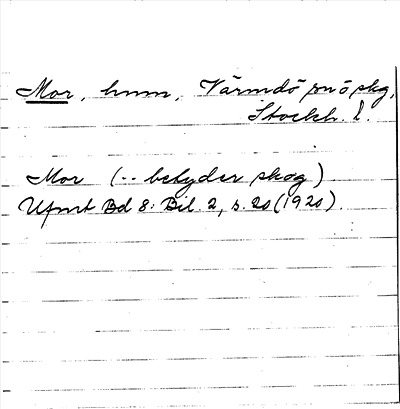 Mor, hmm, Värmdö snö skg,
Stockh. l.
Mor (.. betyder skog)
Ufmt Bd 8: Bil. 2, s. 20 (1920).